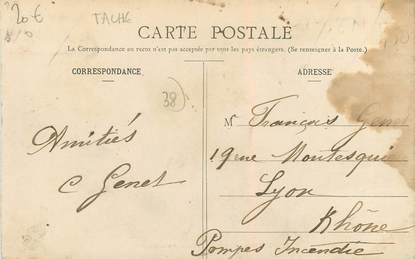 20 €
TACHÉ
CARTE POSTALE
La Correspondance au recto n'est pas acceptée par tous les pays étrangers. (Se renseigner à la Poste.)
CORRESPONDANCE
ADRESSE
38
Amitiés
C Genet
M François Genet
19 rue Montesqui
Lyon
Rhône
Pompes Incendie